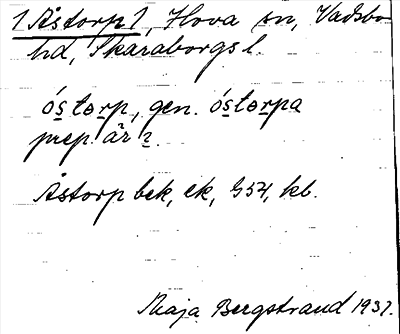 1 Åstorp 1, Hova sn, Vadsbo
hd, Skaraborgs l.
óstorp, gen. óstorpa
prep. är 2.
Åstorp bek, ek, 354, kb.
Maja Bergstrand 1937.